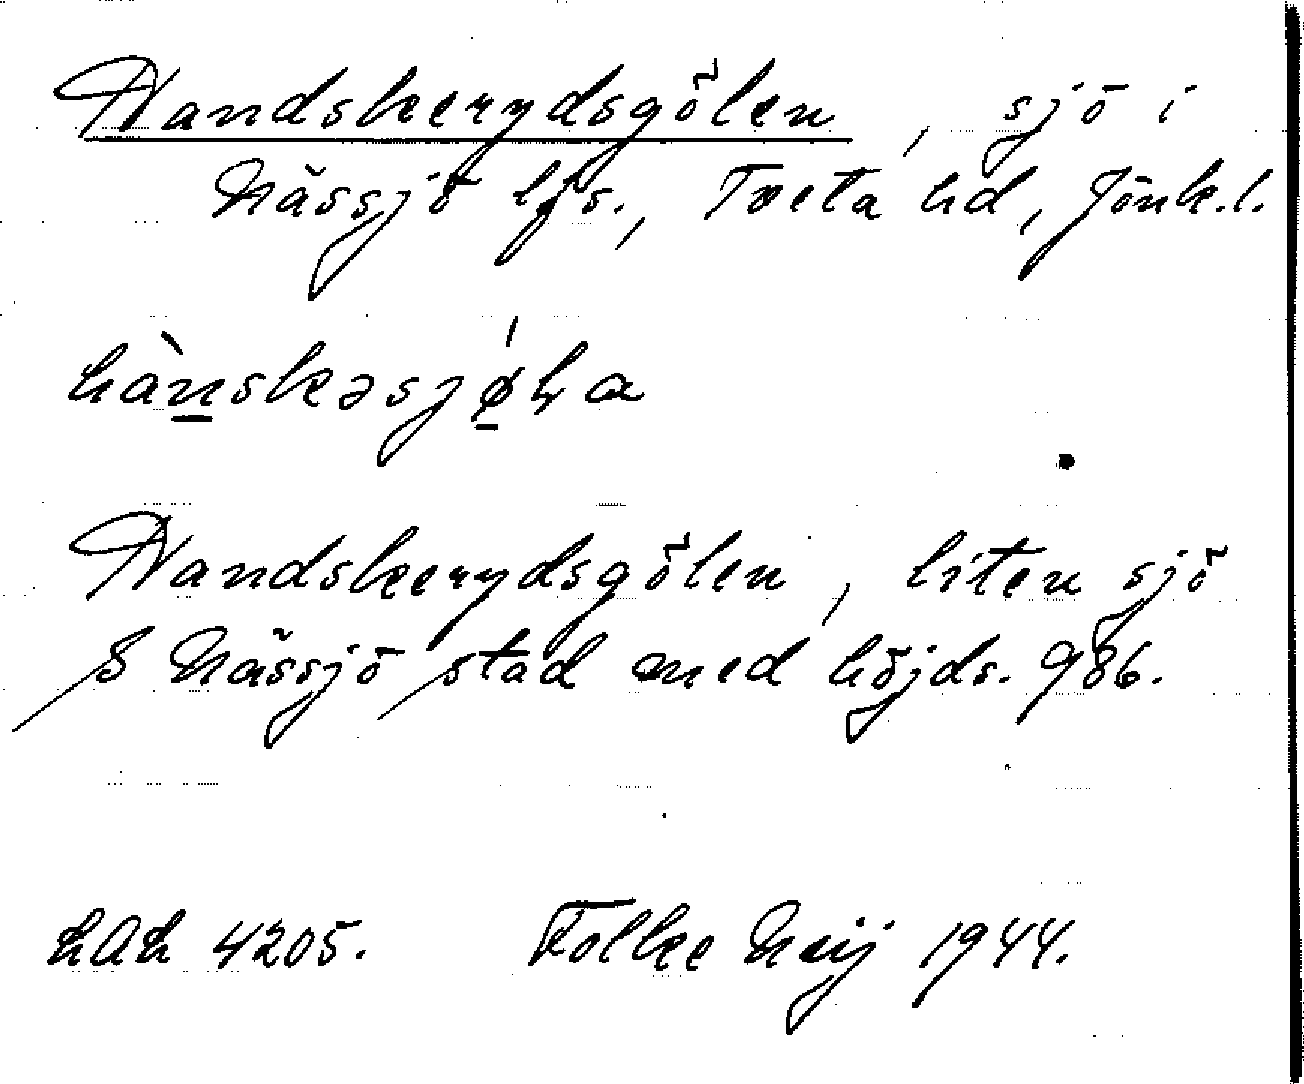 Handskerydsgölen, sjö i
Nässjö lfs., Tveta hd, Jönk. l.
hànskəsjǿḷa
Handskerydsgölen, liten sjö
S Nässjö stad med höjds. 986.
LAL 4205. Folke Neij 1944.